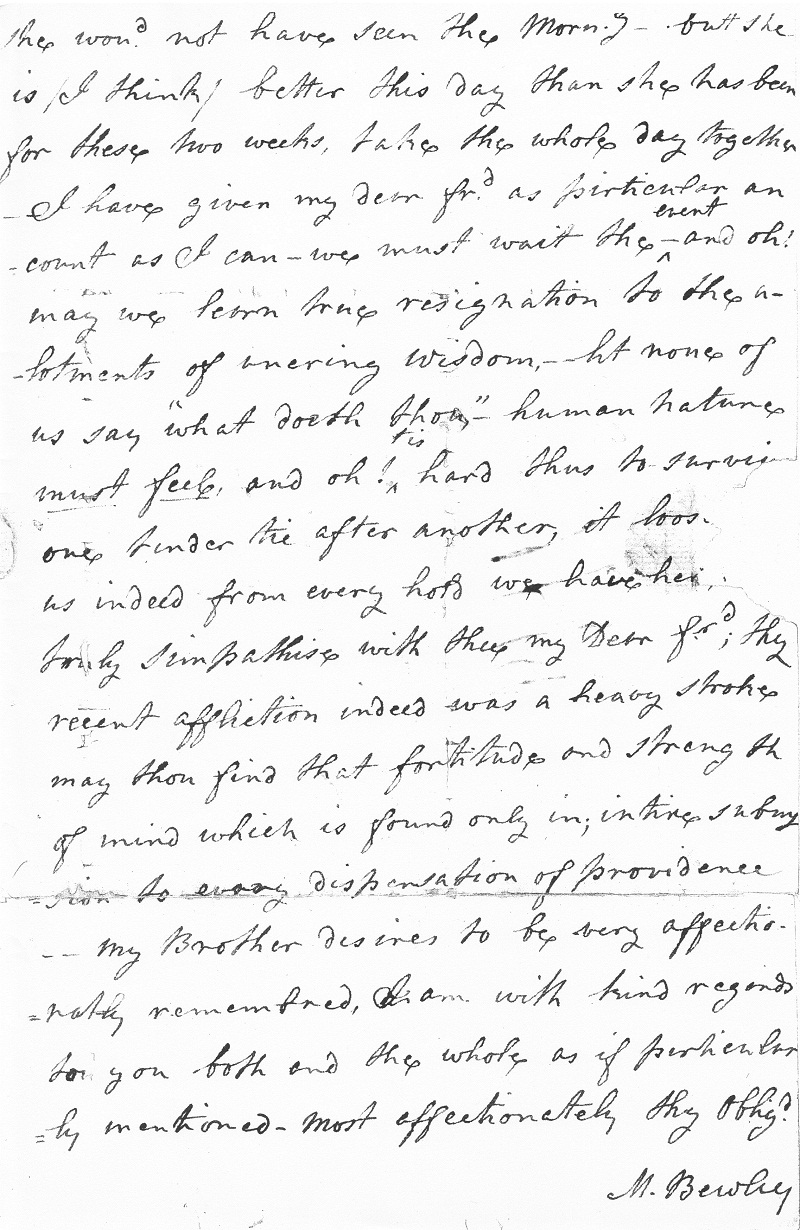 she wou.d not have seen the Morn.g - but she
is /I think/ better this day than she has been
for these two weeks, take the whole day together
- I have given my dear fr.d as particular an
-count as I can - we must wait the event - and oh!
may we learn true resignation to the a-
-lotments of unering wisdom, - let none of
us say "what doeth thou," - human nature
must feel, and oh! tis hard thus to survi
one tender tie after another, it loos.
us indeed from every hold we have her,
truly simpathise with thee my Dear fr.d; thy
recent affliction indeed was a heavy stroke
may thou find that fortitude and strength
of mind which is found only in; intire submy
=sion to every dispensation of providence
-- my Brother desires to be very affectio-
=nately remembred, I am with kind regards
to you both and the whole as if particular
=ly mentioned - most affectionately thy Oblig.d
M. Bewley